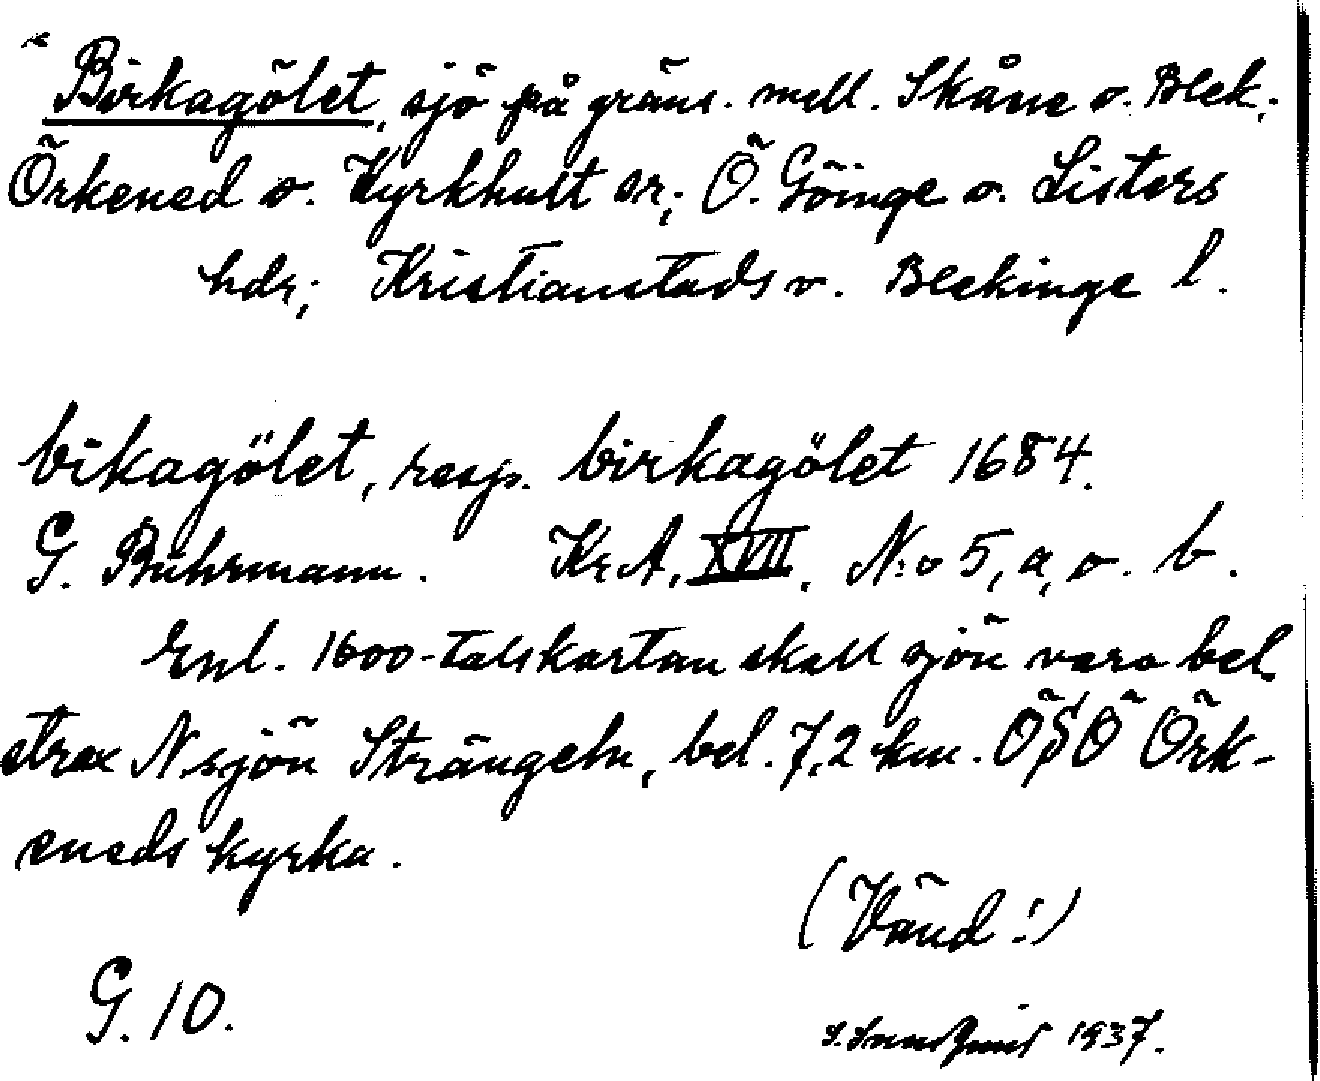 Birkagölet, sjö på gräns. mell. Skåne o. Blek.
Örkened o. Kyrkhult sr; Ö. Göinge o. Listers
hdr; Kristianstads o. Blekinge l.
bikagölet, resp. birkagölet 1684.
G. Buhrmann. Kr.A. XVII. N:o 5, a, o. b.
Enl. 1600-talskartan skall sjön vara bel.
strax N sjön Strängeln, bel. 7,2 km. ÖSÖ Örk-
eneds kyrka.
(Vänd!)
G. 10.
1937.